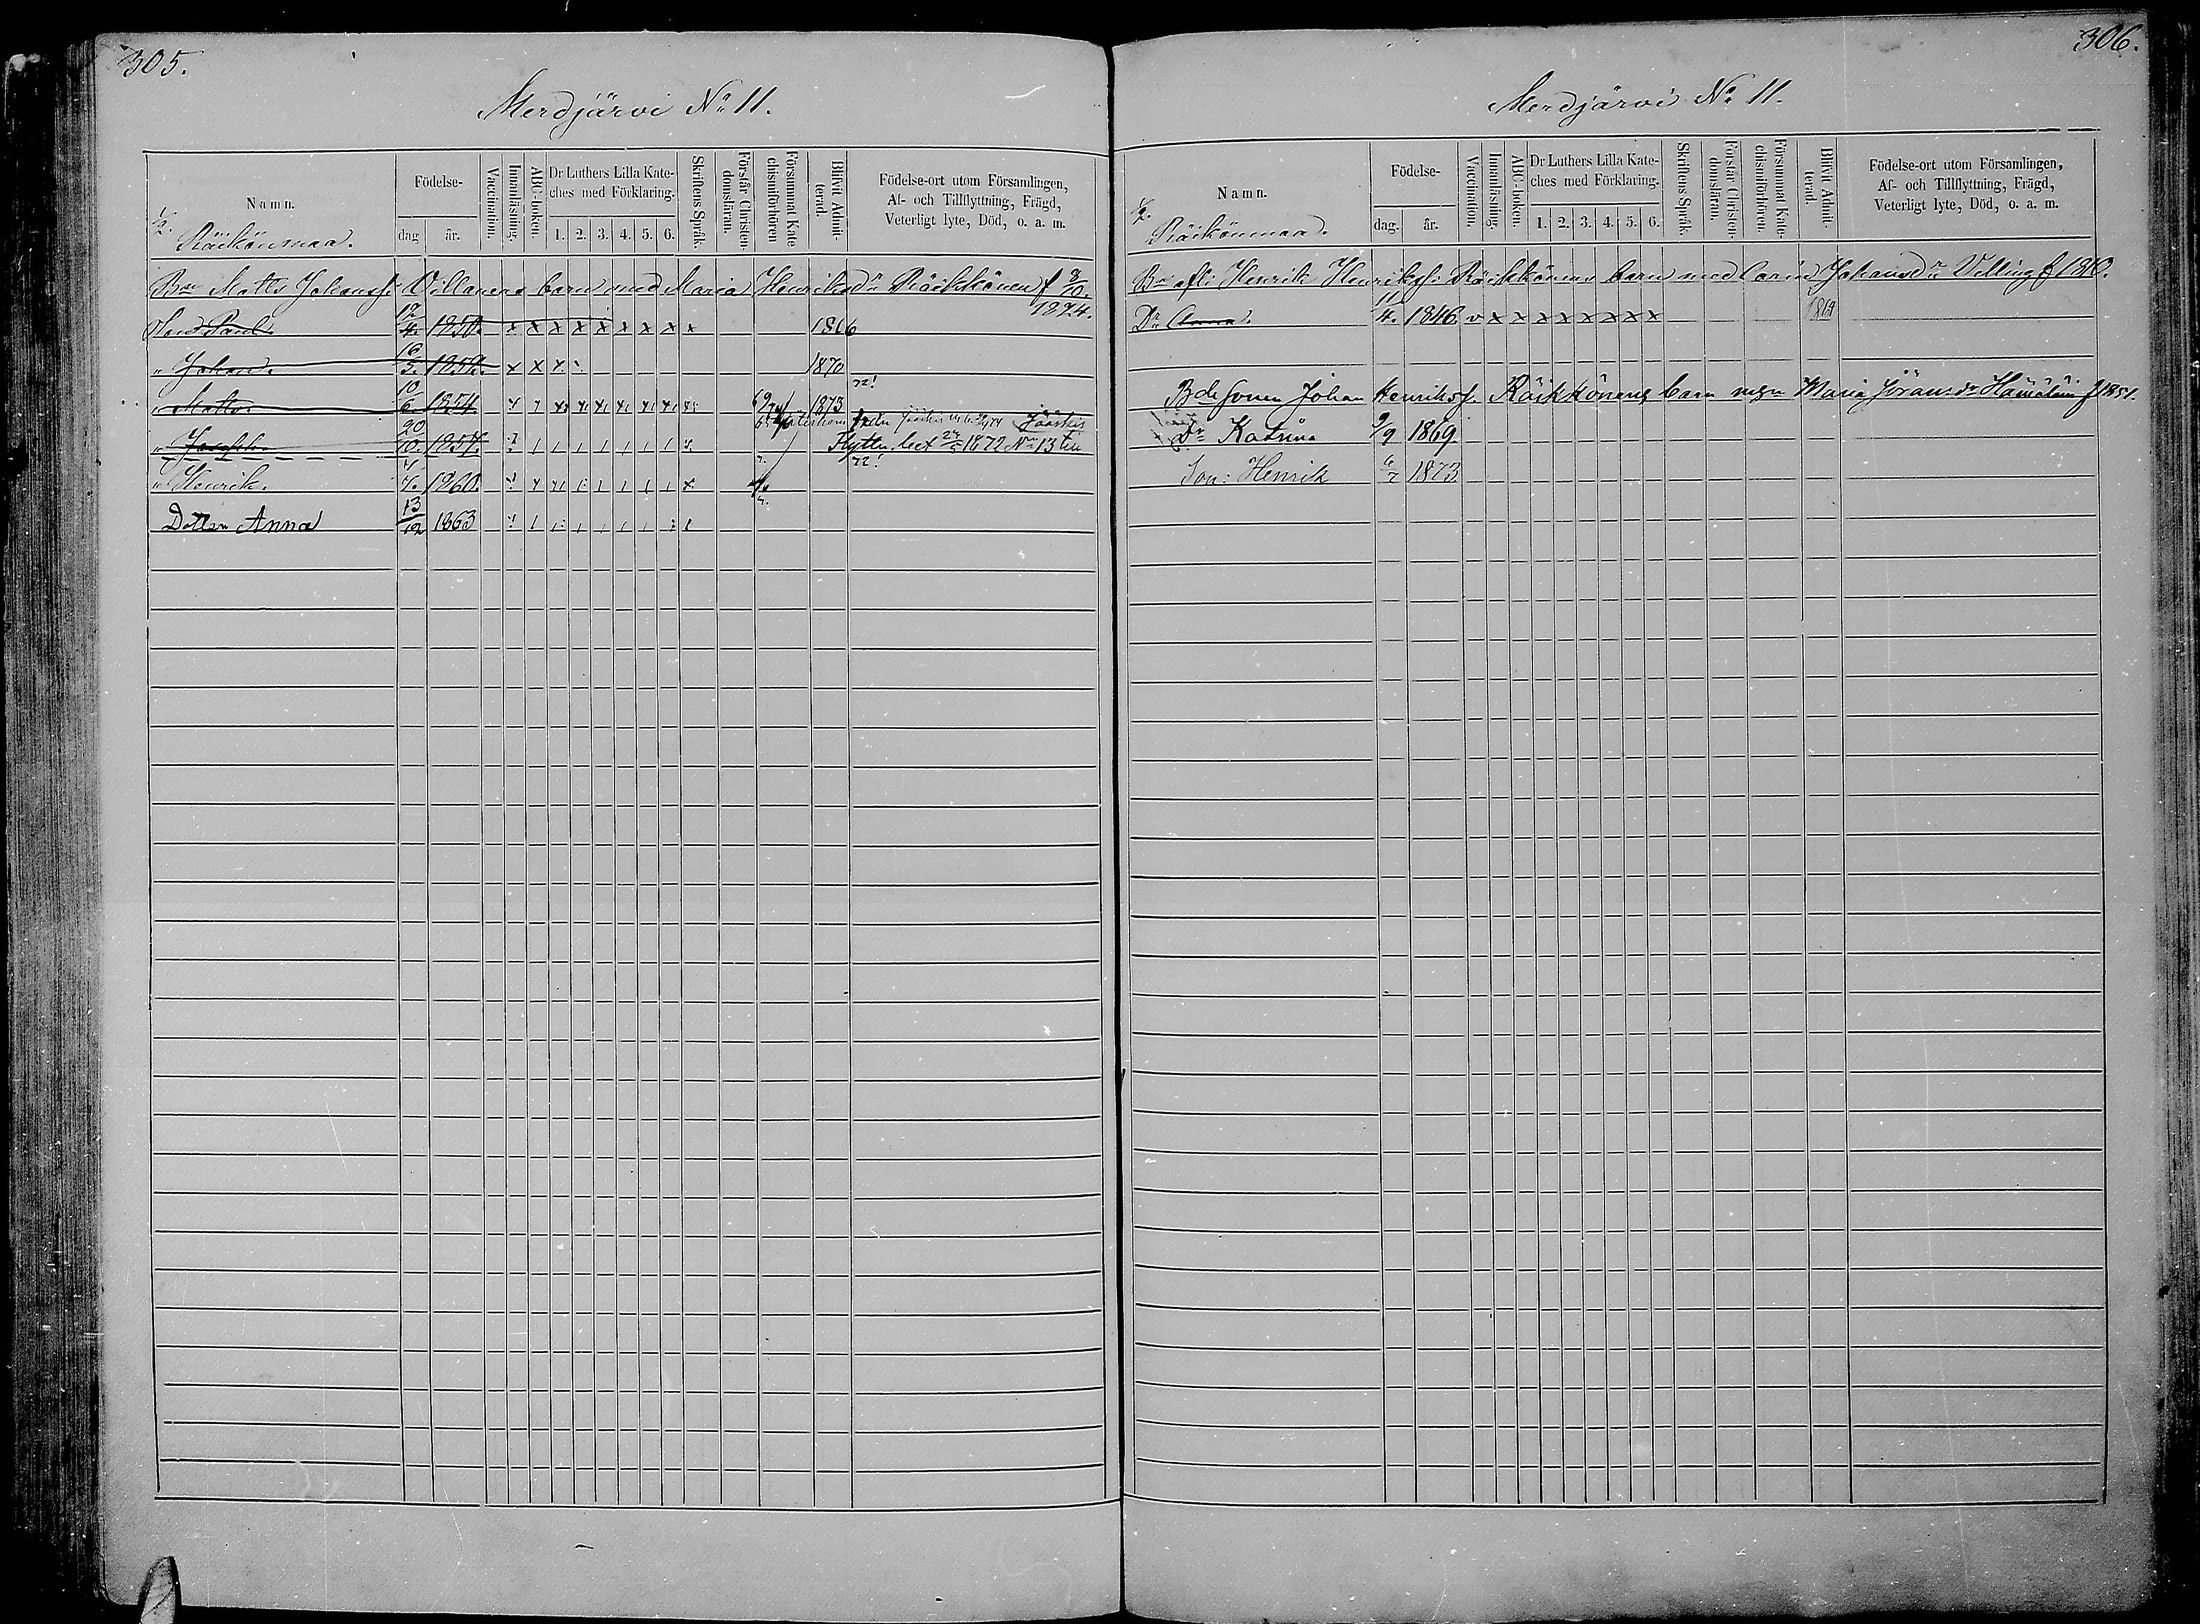 305.
Merdjärvi No 11.
Namn.
Födelse-
dag
år.
Vaccination.
Innanläsning.
ABC-boken.
Dr Luthers Lilla Kate-
ches med Förklaring.
1. 2. 3. 4. 5. 6.
Skriftens Språk.
Förstår Christen-
domsläran.
Försummat Kate
chismiförhören
Blivit Admit-
terad.
Födelse-ort utom Församlingen,
Af- och Tillflyttning, Frägd,
Veterligt lyte, Död, o. a. m.
1/2. Räikönmaa.
Bn Matts Johanss: Villanens barn med Maria Henriksdr Räikkönen f
1824.
Paul 17/4. 1850. x x x x x x x x x x 1866
" Johan. 16/3. 1852. x x x 1870
72!
" Matts. 10/6. 1854. 1873
" Joseph. 30/10. 1857. Flytt. bet 1872 No 13 till Jääskis
72!
" Henrik. 1860.
Dottrn Anna 13/12 1863
306.
Merdjärvi No 11.
Namn.
Födelse-
dag.
år.
Vaccination.
Innanläsning.
ABC-boken.
Dr Luthers Lilla Kate-
ches med Förklaring.
1. 2. 3. 4. 5. 6.
Skriftens Språk.
Förstår Christen-
domsläran.
Försummat Kate-
chismiförhören.
Blivit Admit-
terad.
Födelse-ort utom Församlingen,
Af- och Tillflyttning, Frägd,
Veterligt lyte, Död, o. a. m.
1/2. Räikönmaa.
Bn afl: Henrik Henrikss: Räikkönens barn med Carin Johansdr Velling f 1820.
Dr Anna. 11/4. 1846. v x x x x x x x x 1864
Bdesonen Johan Henrikss. Räikkönens barn m Maria Jöransdr f 1851.
Dr Katrina 9/9 1869
Son: Henrik 6/7 1873